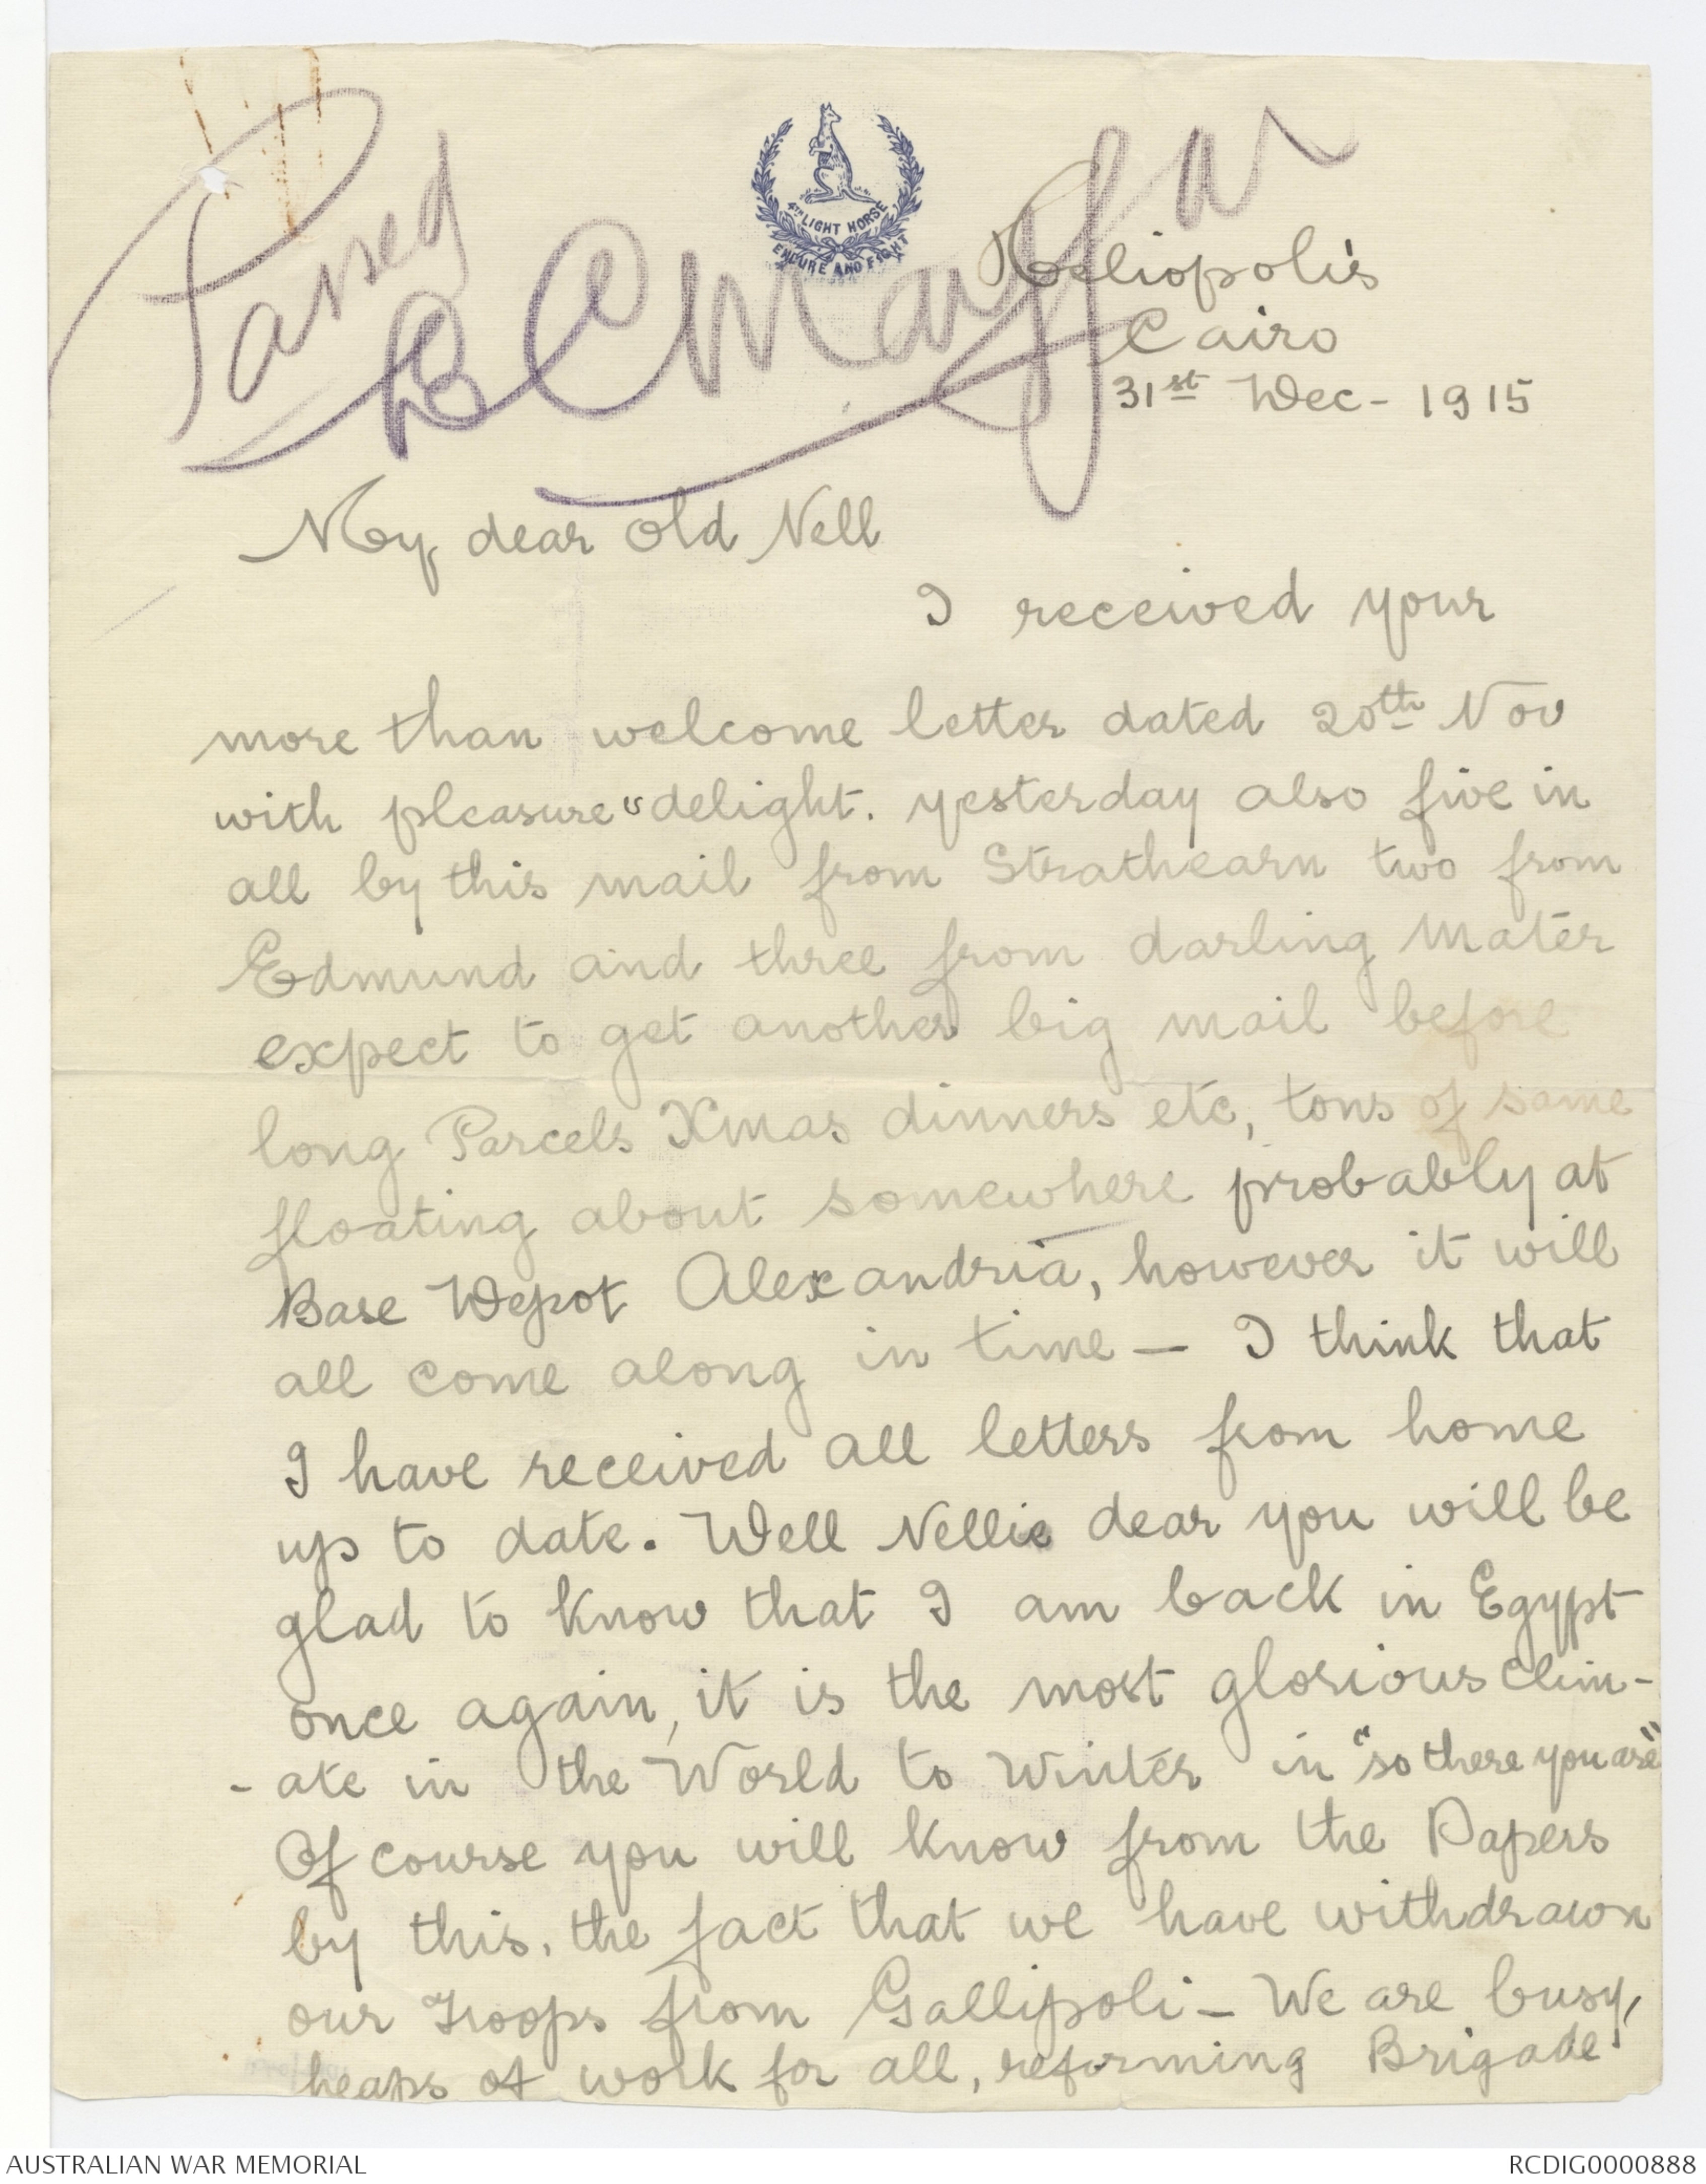 Passed
4TH LIGHT HORSE
ENDURE AND FIGHT
Heliopolis
Cairo
31st Dec - 1915
My dear old Nell
I received your
more than welcome letter dated 20th Nov
with pleasure & delight. yesterday also five in
all by this mail from Strathearn two from
Edmund and three from darling Mater
expect to get another big mail before
long Parcels Xmas dinners etc, tons of same
floating about somewhere probably at
Base Depot Alexandria, however it will
all come along in time — I think that
I have received all letters from home
up to date. Well Nellie dear you will be
glad to know that I am back in Egypt
once again, it is the most glorious clim-
- ate in the World to Winter in "so there you are"
Of course you will know from the Papers
by this, the fact that we have withdrawn
our Troops from Gallipoli - We are busy,
heaps of work for all, reforming Brigade
AUSTRALIAN WAR MEMORIAL
RCDIG0000888